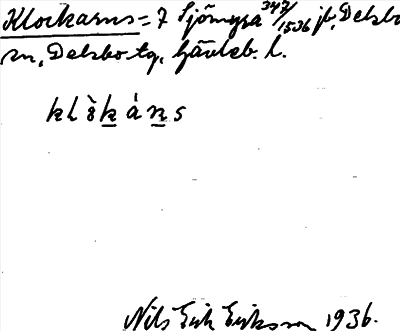 Klockarns = 7 Sjömyra 343/1536 jb, Delsbo
sn, Delsbo tg, Gävleb. l.
klò̤káns
Nils Erik Eriksson 1936.